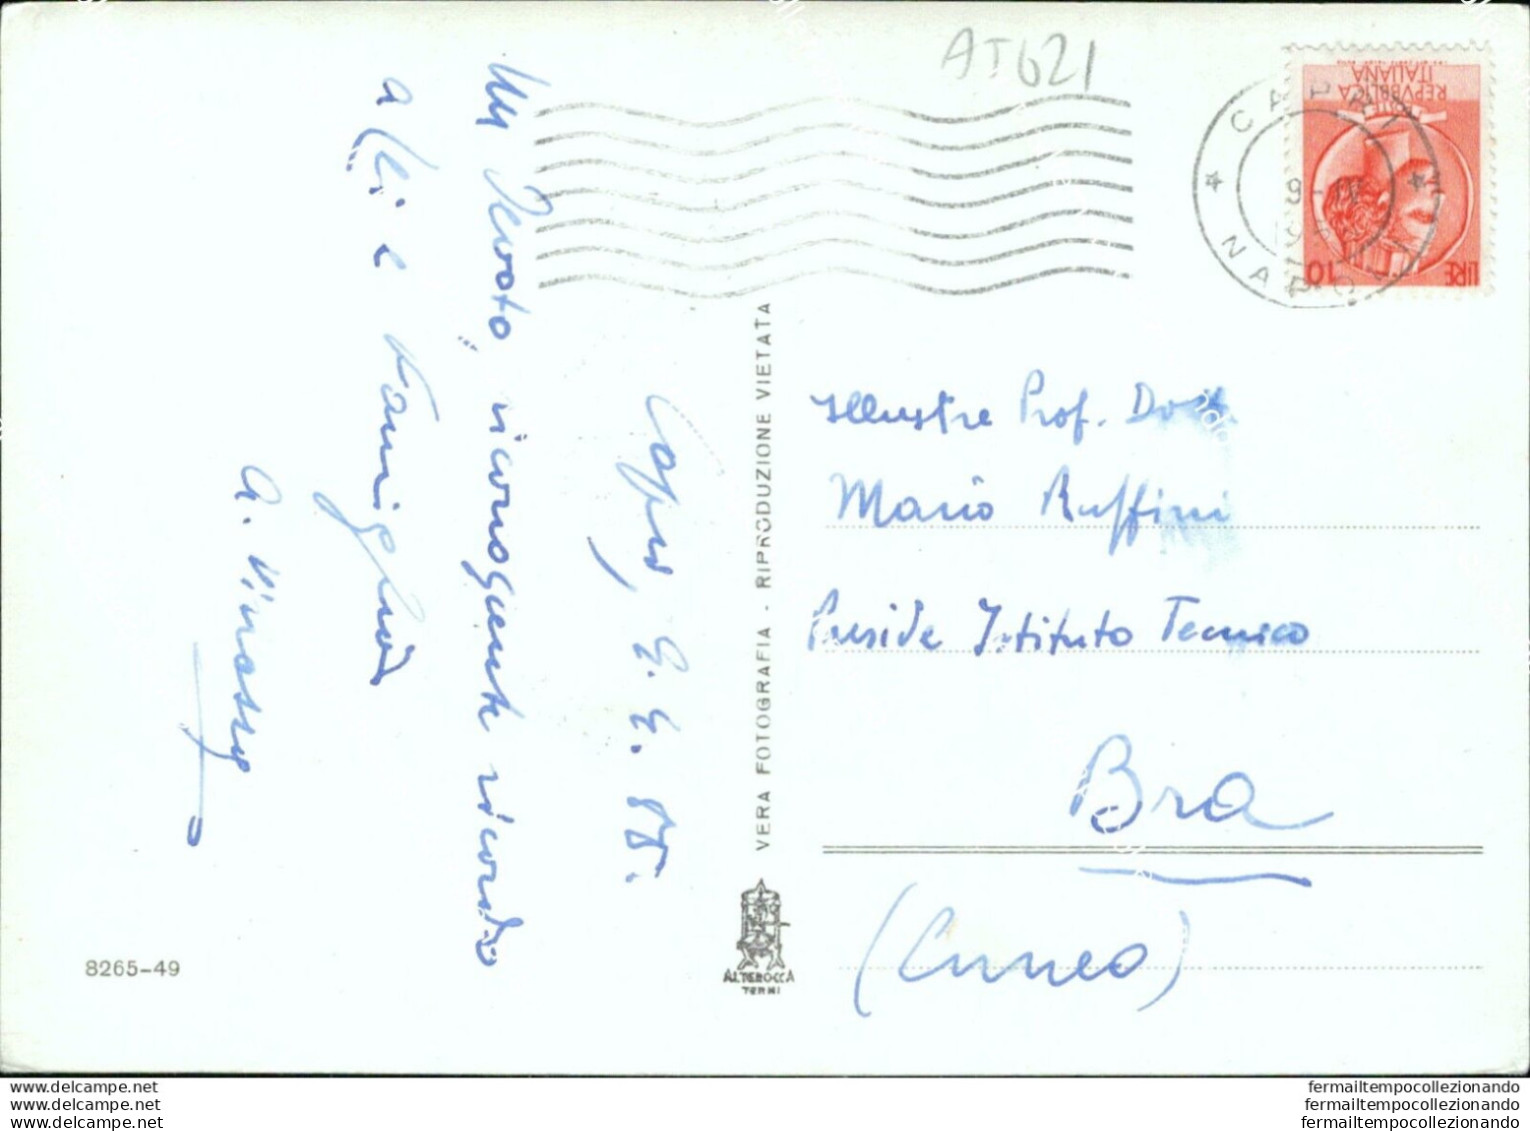 AT621
CAPRI
NAPOLI
REPVBBLICA
ITALIANA
LIRE 10
Un devoto, riconoscente ricordo
a Lei e Famiglia
Capri, 9. 4. 58.
VERA FOTOGRAFIA - RIPRODUZIONE VIETATA
Illustre Prof. Dott.
Mario Ruffini
Preside Istituto Tecnico
Bra
(Cuneo)
8265-49
ALTEROCCA
TERNI
www.delcampe.net
www.delcampe.net
www.delcampe.net
fermailtempocollezionando
fermailtempocollezionando
fermailtempocollezionando